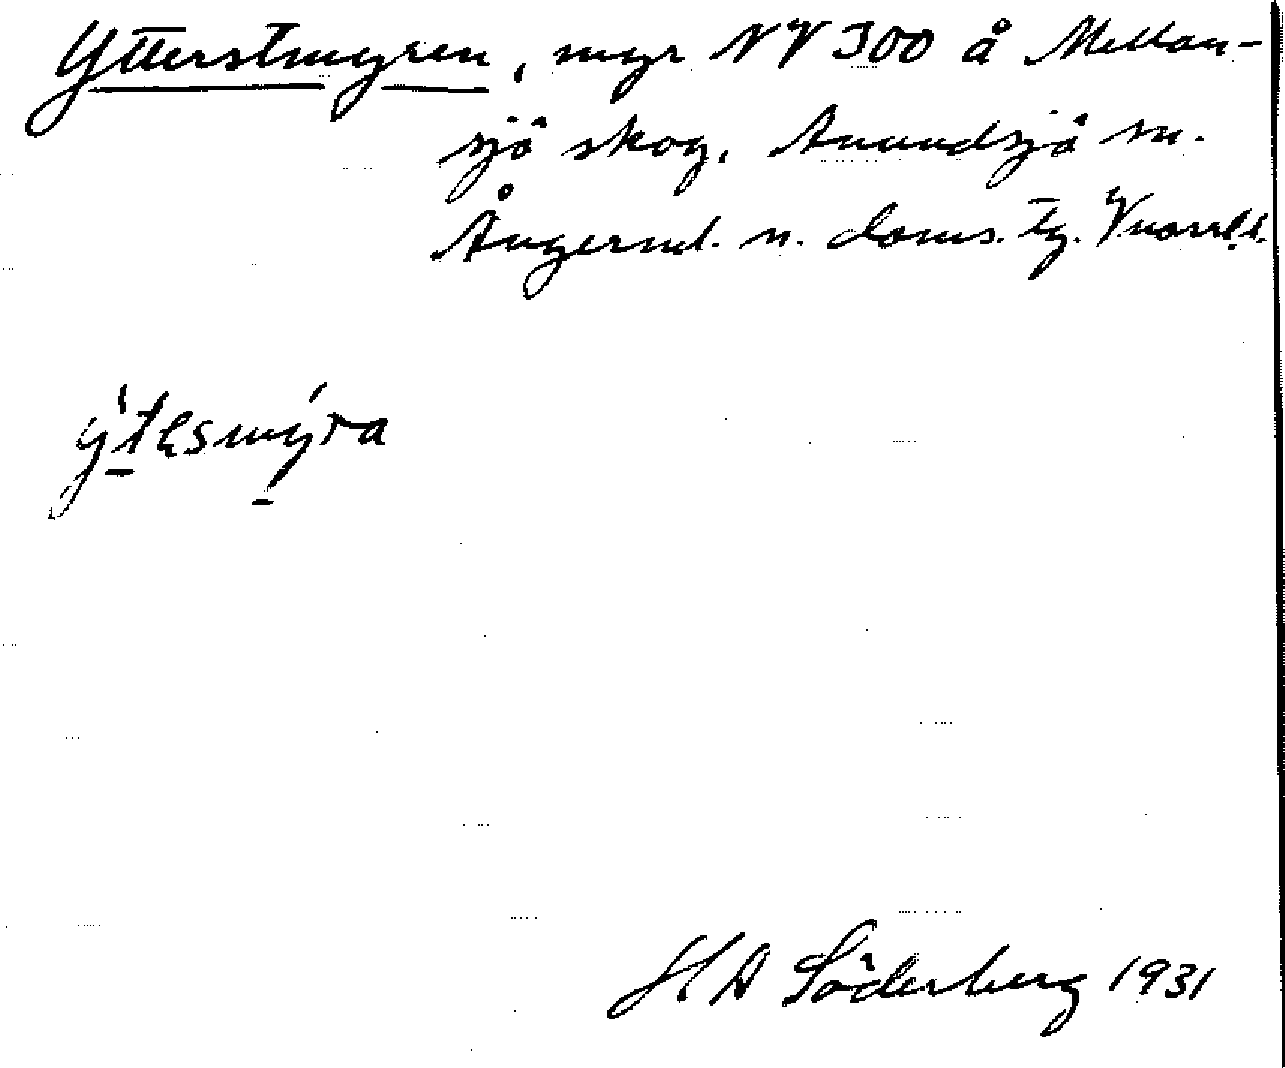 Ytterstmyren, myr NV 300 å Mellan-
sjö skog, Anundsjö sn.
Ångerml. n. doms. tg.
ýtesmýra
H D Söderberg 1931